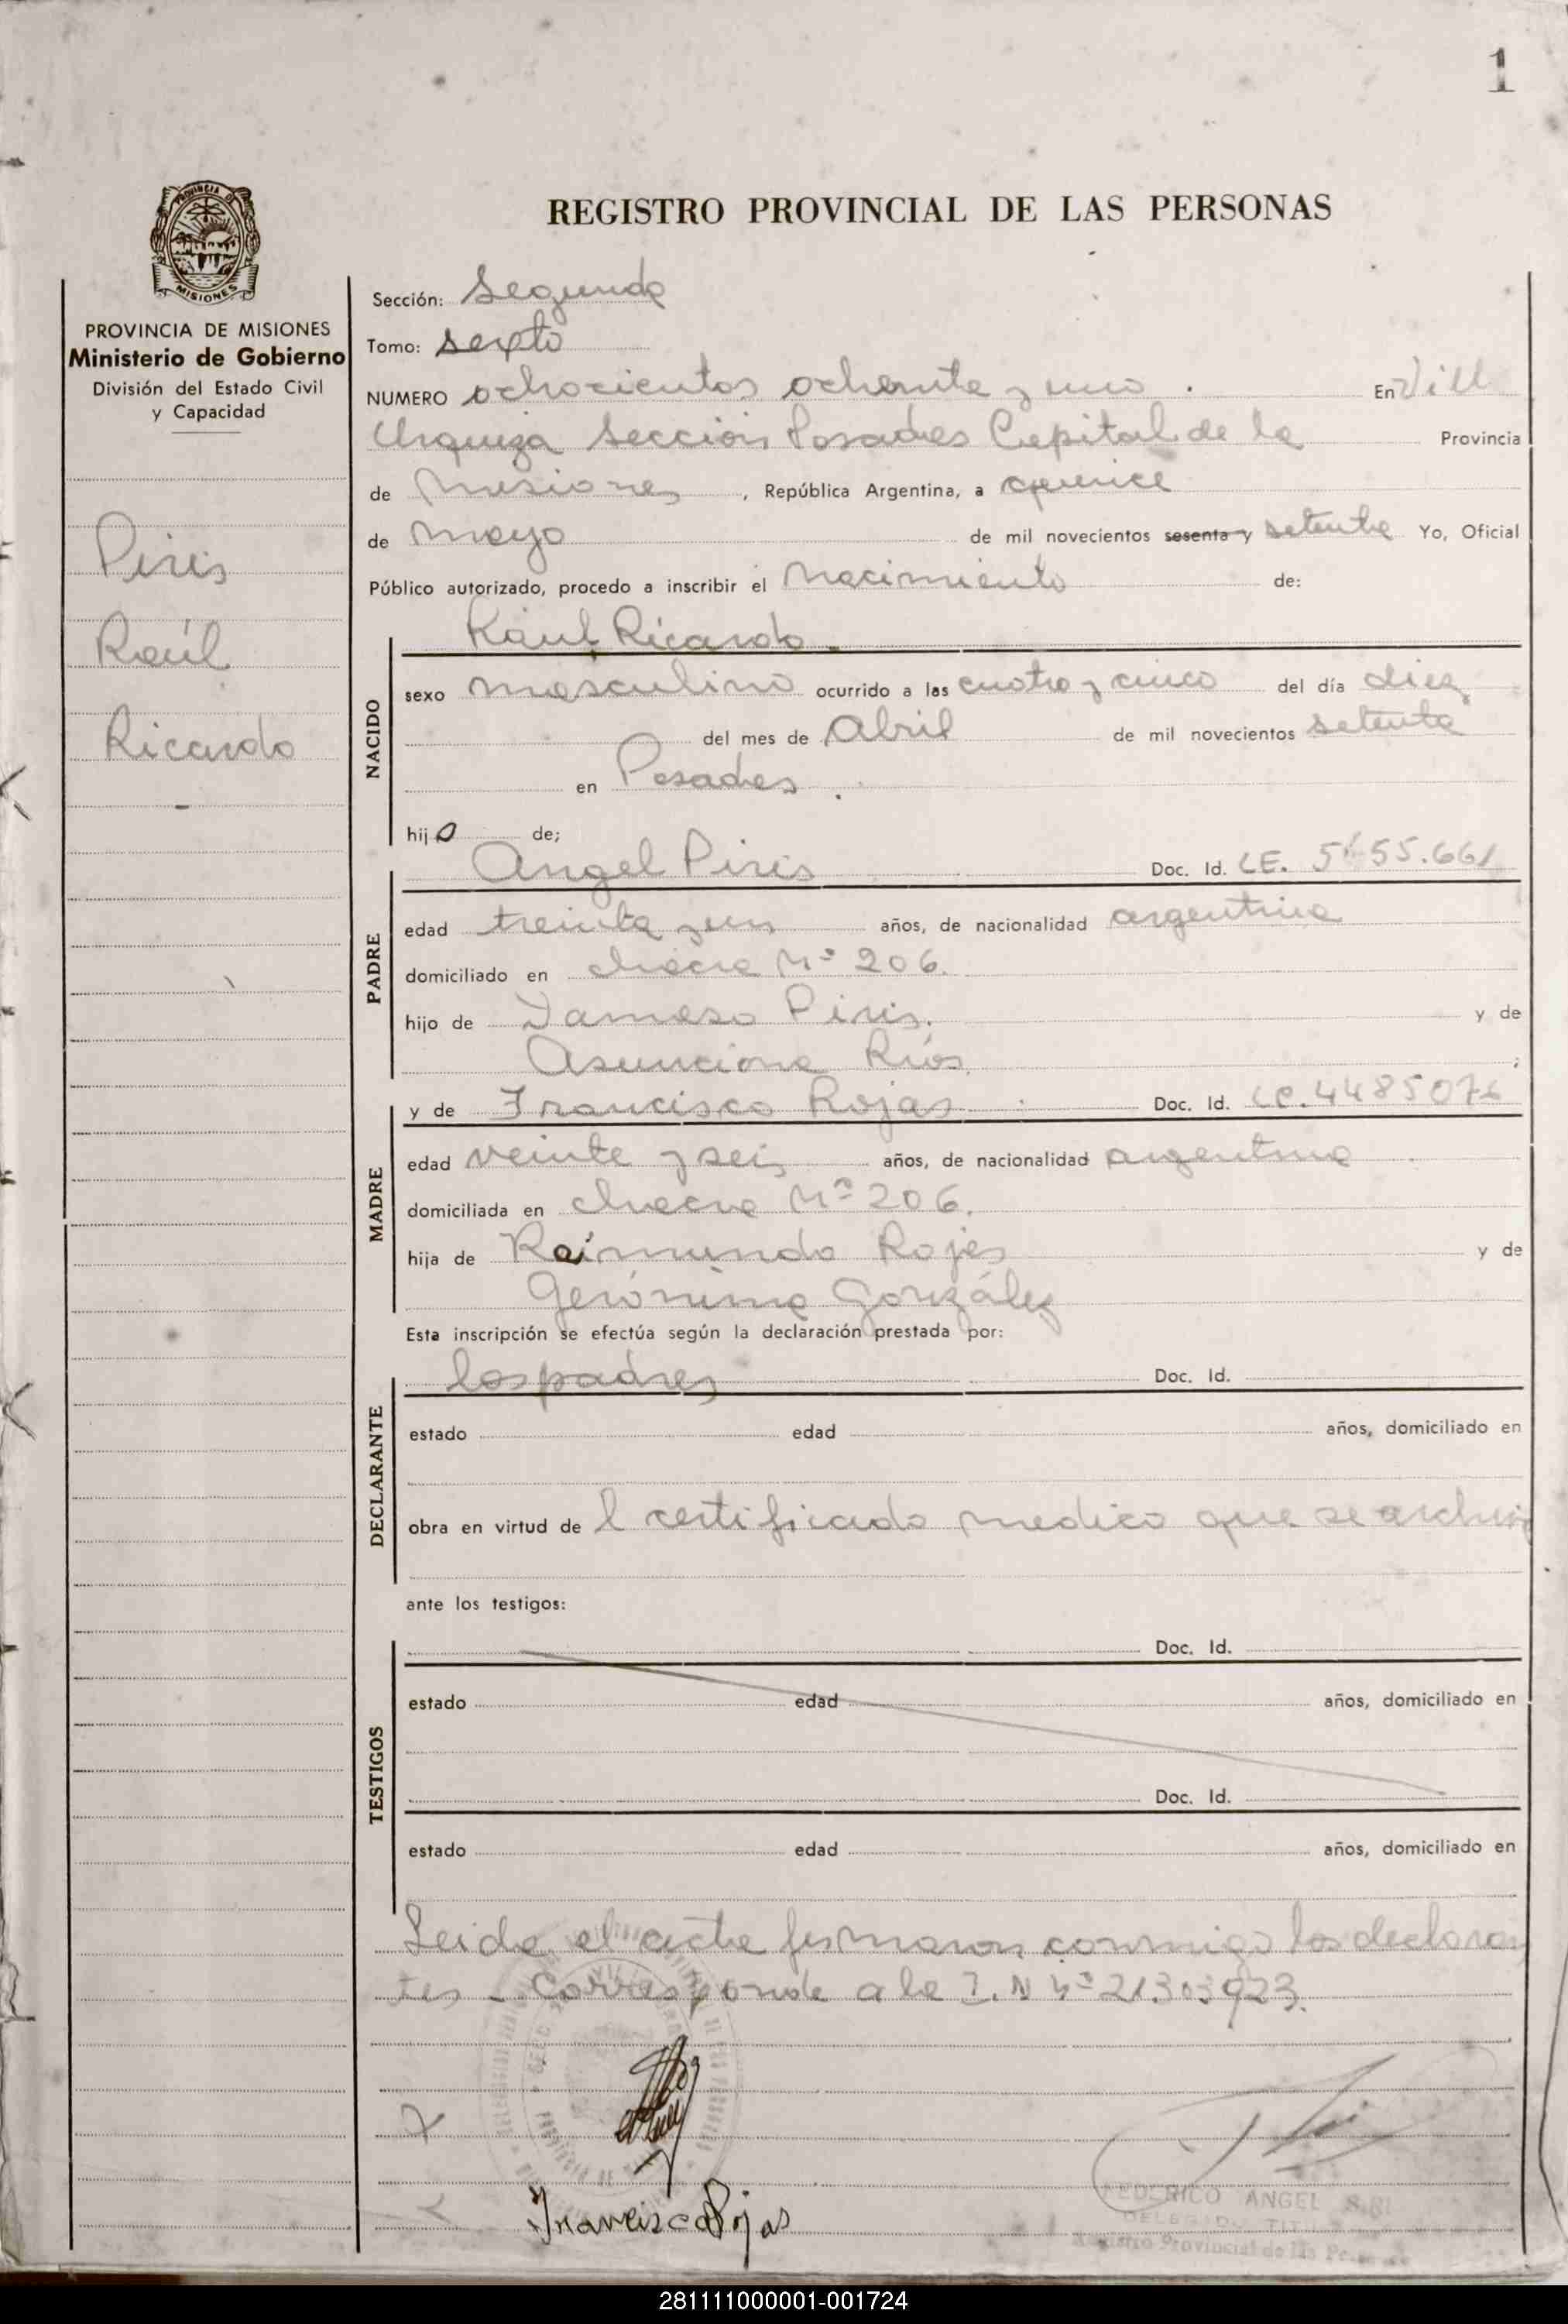 1
REGISTRO PROVINCIAL DE LAS PERSONAS
PROVINCIA DE MISIONES
MISIONES
PROVINCIA DE MISIONES
Ministerio de Gobierno
División del Estado Civil
y Capacidad
Piris
Raúl
Ricardo
Sección: Segunda
Tomo: Sexto
NUMERO ochocientos ochenta y uno . En Vill
Urquiza Sección Posadas Capital de la Provincia
de Misiones, República Argentina, a quince
de mayo de mil novecientos sesenta y setenta Yo, Oficial
Público autorizado, procedo a inscribir el Nacimiento de:
Raúl Ricardo
NACIDO
sexo masculino ocurrido a las cuatro y cinco del día diez
del mes de Abril de mil novecientos setenta
en Posadas.
hijo de;
Angel Piris Doc. Id. LE.
PADRE
edad treinta y un años, de nacionalidad argentina
domiciliado en chacra Nº 206.
hijo de Damaso Piris. y de
Asunciona Ríos ;
y de Francisca Rojas Doc. Id. LC. 
MADRE
edad veinte y seis años, de nacionalidad argentina
domiciliada en chacra Nº 206.
hija de Raimundo Rojas y de
Gerónima González
Esta inscripción se efectúa según la declaración prestada por:
los padres Doc. Id.
DECLARANTE
estado edad años, domiciliado en
obra en virtud de l certificado medico que se archiva
ante los testigos:
Doc. Id.
TESTIGOS
estado edad años, domiciliado en
Doc. Id.
estado edad años, domiciliado en
Leida el acta firmaron conmigo los declaran
tes - Corresponde a la I. N Nº 21303923.
Francisca Rojas
FEDERICO ANGEL
Registro Provincial de las
281111000001-001724